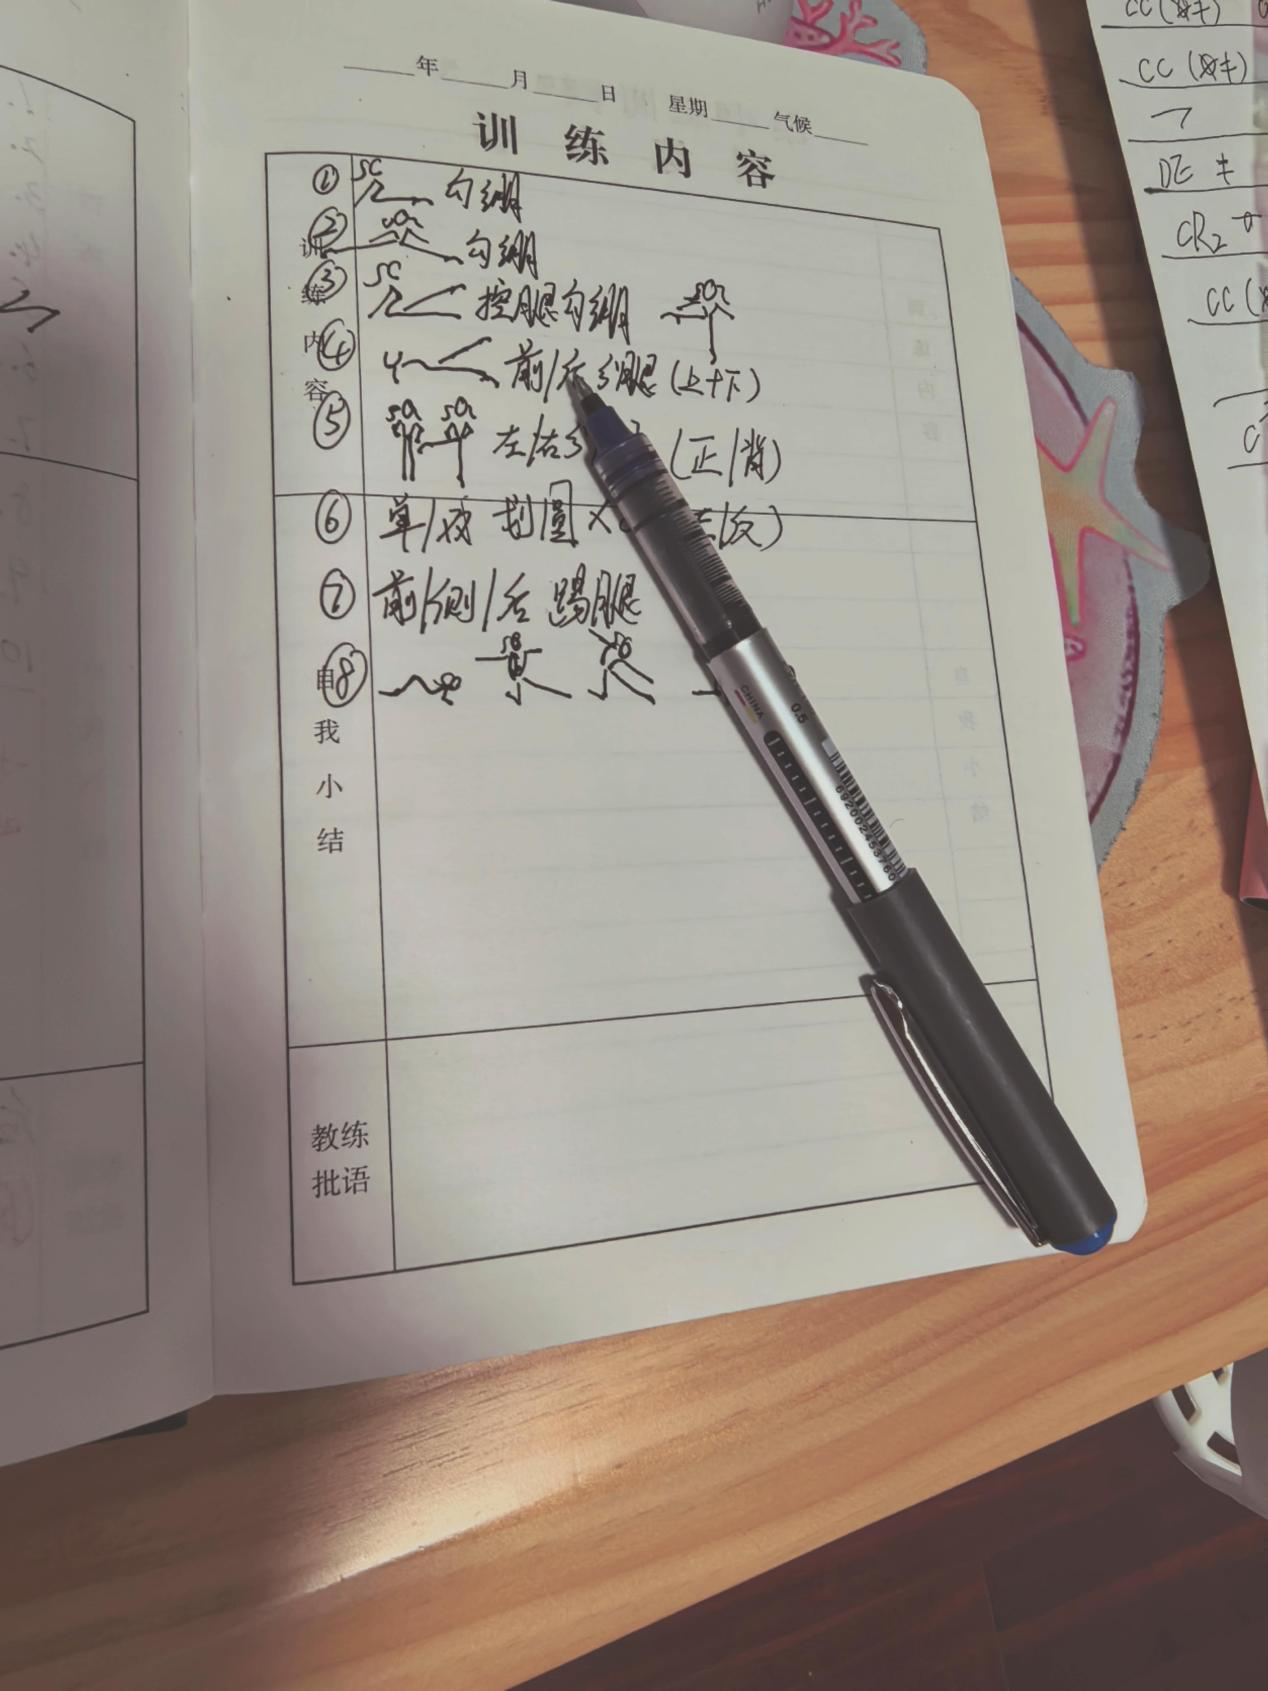 年 月 日 星期 气候
训练内容
训练内容
① 勾绷
② 勾绷
③ 控腿勾绷
④ 前/后 腿 (上+下)
⑤ 左/右 (正/背)
⑥ 单/双 划圆 × /反)
⑦ 前/侧/后 踢腿
⑧
自我小结
教练
批语
CHINA
0.5
6920024537
CC(
CC(
DE
CR2
CC(